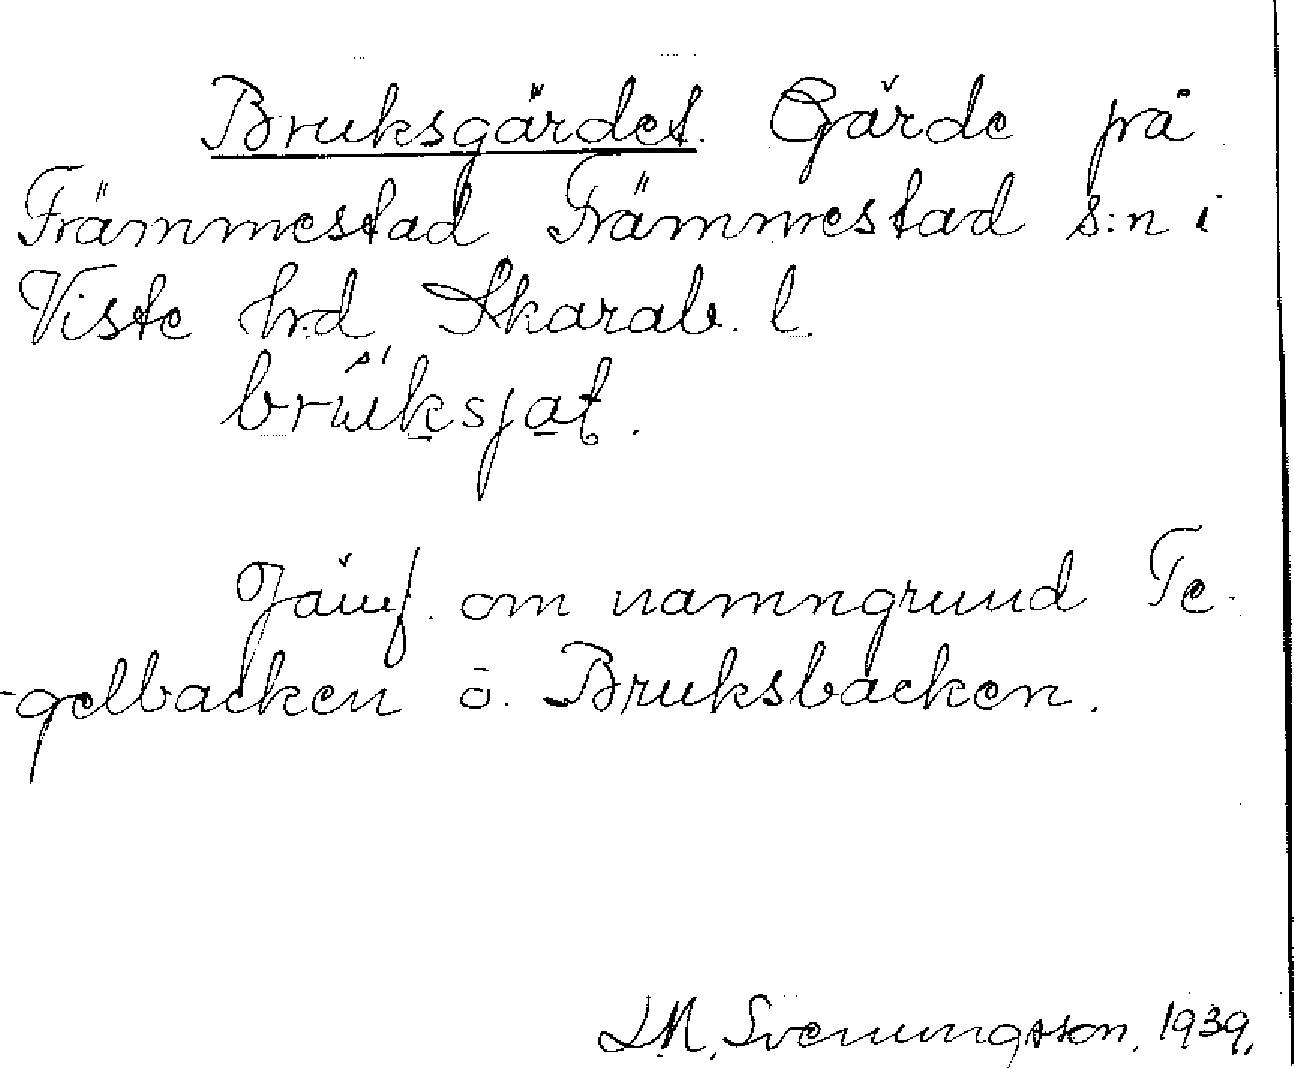 Bruksgärdet. Gärde på
Främmestad Främmestad s:n i
Viste hd Skarab. l.
bruksjat.
Jämf. om namngrund Te-
gelbacken o. Bruksbacken.
D.M. Svenungsson. 1939.